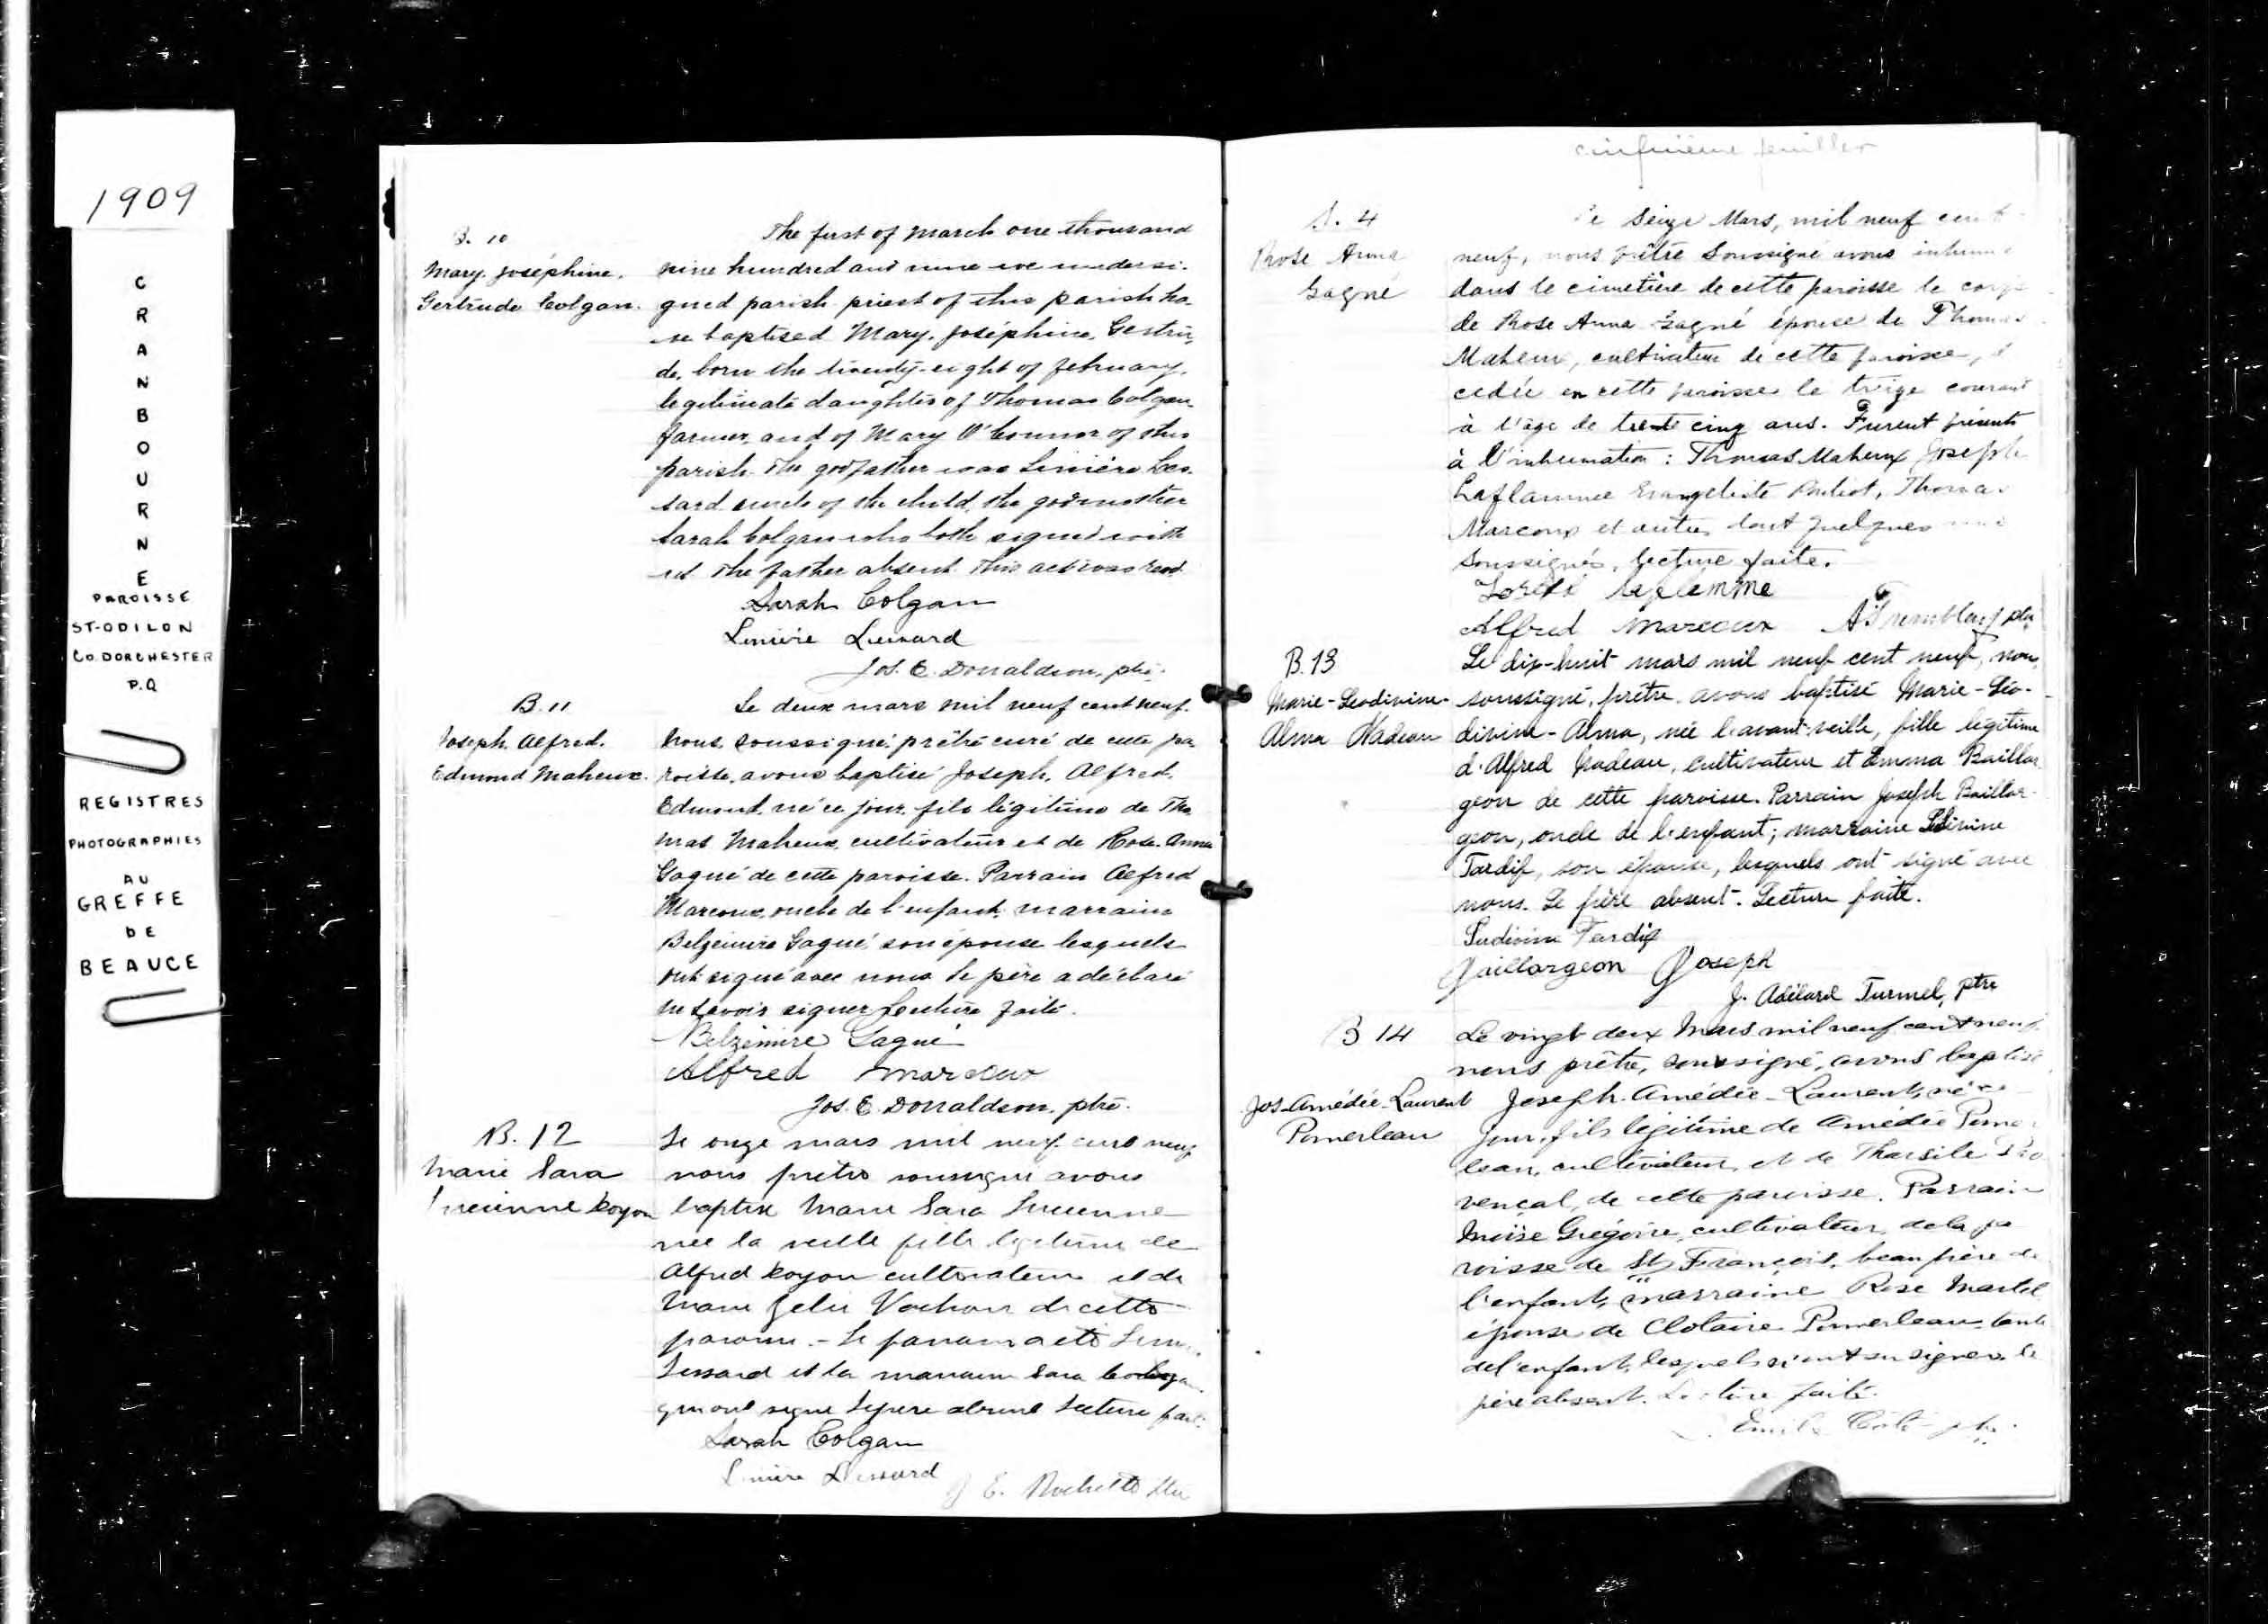 1909
CRANBOURNE
PAROISSE
ST-ODILON
Co. DORCHESTER
P.Q
REGISTRES
PHOTOGRAPHIES
AU
GREFFE
DE
BEAUCE
B. 10
Mary. Joséphine.
Gertrude Colgan.
The first of March one thousand
nine hundred and nine we undersi-
gned parish priest of this parish ha-
ve baptised Mary. Joséphine, Gertru-
de, born the twenty-eight of february,
legitimate daughter of Thomas Colgan
farmer, and of Mary O'Connor of this
parish. The godfather was Linière Les-
sard uncle of the child, the godmother
Sarah Colgan who both signed with
us. The father absent. This act was read.
Sarah Colgan
Linière Lessard
Jos. E. Donaldson, ptre.
B. 11
Joseph. Alfred.
Edmond Maheux.
Le deux mars mil neuf cent neuf.
Nous soussigné prêtre curé de cette pa
roisse, avons baptisé Joseph. Alfred.
Edmond, né ce jour, fils légitime de Tho
mas Maheux, cultivateur et de Rose-Anna
Gagné de cette paroisse. Parrain Alfred
Marcoux, oncle de l'enfant marraine
Belzémire Gagné son épouse lesquels
ont signé avec nous le père a déclaré
ne savoir signer Lecture faite.
Belzémire Gagné
Alfred Marcoux
Jos. E. Donaldson, ptre.
B. 12
Marie Sara
Lucienne Royon
Le onze mars mil neuf cent neuf
nous prêtre soussigné avons
baptisé Marie Sara Lucienne
née la veille fille légitime de
Alfred Royon cultivateur et de
Marie Zelie Vachon de cette
paroisse. - Le parrain a été
Lessard et la marraine Sara
qui ont signé le père absent Lecture faite
Sarah Colgan
Linière Lessard
J E. Rochette ptre
cinquième feuillet
S. 4
Rose Anna
Gagné
Le Seize Mars, mil neuf cent
neuf, nous prêtre Soussigné avons inhumé
dans le cimetière de cette paroisse le corps
de Rose Anna Gagné épouse de Thomas
Maheux, cultivateur de cette paroisse, dé
cédée en cette paroisse le treize courant
à l'âge de trente cinq ans. Furent présents
à l'inhumation : Thomas Maheux Joseph
Laflamme Evangeliste Pouliot, Thomas
Marcoux et autres dont quelques uns
Soussignés, lecture faite.
laflamme
Alfred Marcoux A Tremblay ptre
B. 13
Marie-Leodivine-
Alma Nadeau
Le dix-huit mars mil neuf cent neuf, nous
soussigné, prêtre avons baptisé Marie-Léo-
divine-Alma, née l'avant-veille, fille légitime
d'Alfred Nadeau, cultivateur et Emma Baillar
geon de cette paroisse. Parrain Joseph Baillar-
geon, oncle de l'enfant; marraine
Tardif, son épouse, lesquels ont signé avec
nous. Le père absent. Lecture faite.
Ludivine Tardif
Baillargeon Joseph
J. Adélard Turmel, ptre
B 14
Jos-Amédée-Laurent
Pomerleau
Le vingt deux Mars mil neuf cent neuf
nous prêtre, soussigné, avons baptisé
Joseph-Amédée-Laurent, né ce
jour, fils légitime de Amédée Pomer
leau, cultivateur, et de Tharsile Pro
vençal, de cette paroisse. Parrain
Moïse Grégoire, cultivateur, de la pa
roisse de St François, beau père de
l'enfant, marraine Rose Martel
épouse de Clotaire Pomerleau, tante
de l'enfant, lesquels n'ont su signer, le
père absent. Lecture faite.
Emile Coté ptre.